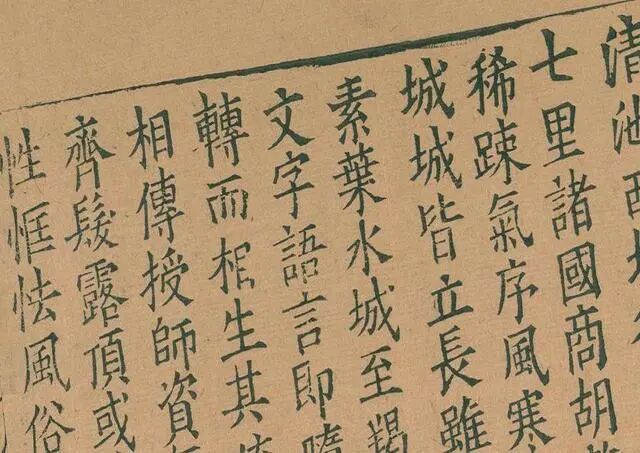 清池西北
七里諸國商胡
稀踈氣序風寒
城城皆立長雖
素葉水城至羯
文字語言即隨
轉而相生其
相傳授師資
齊髮露頂或
性恇怯風俗